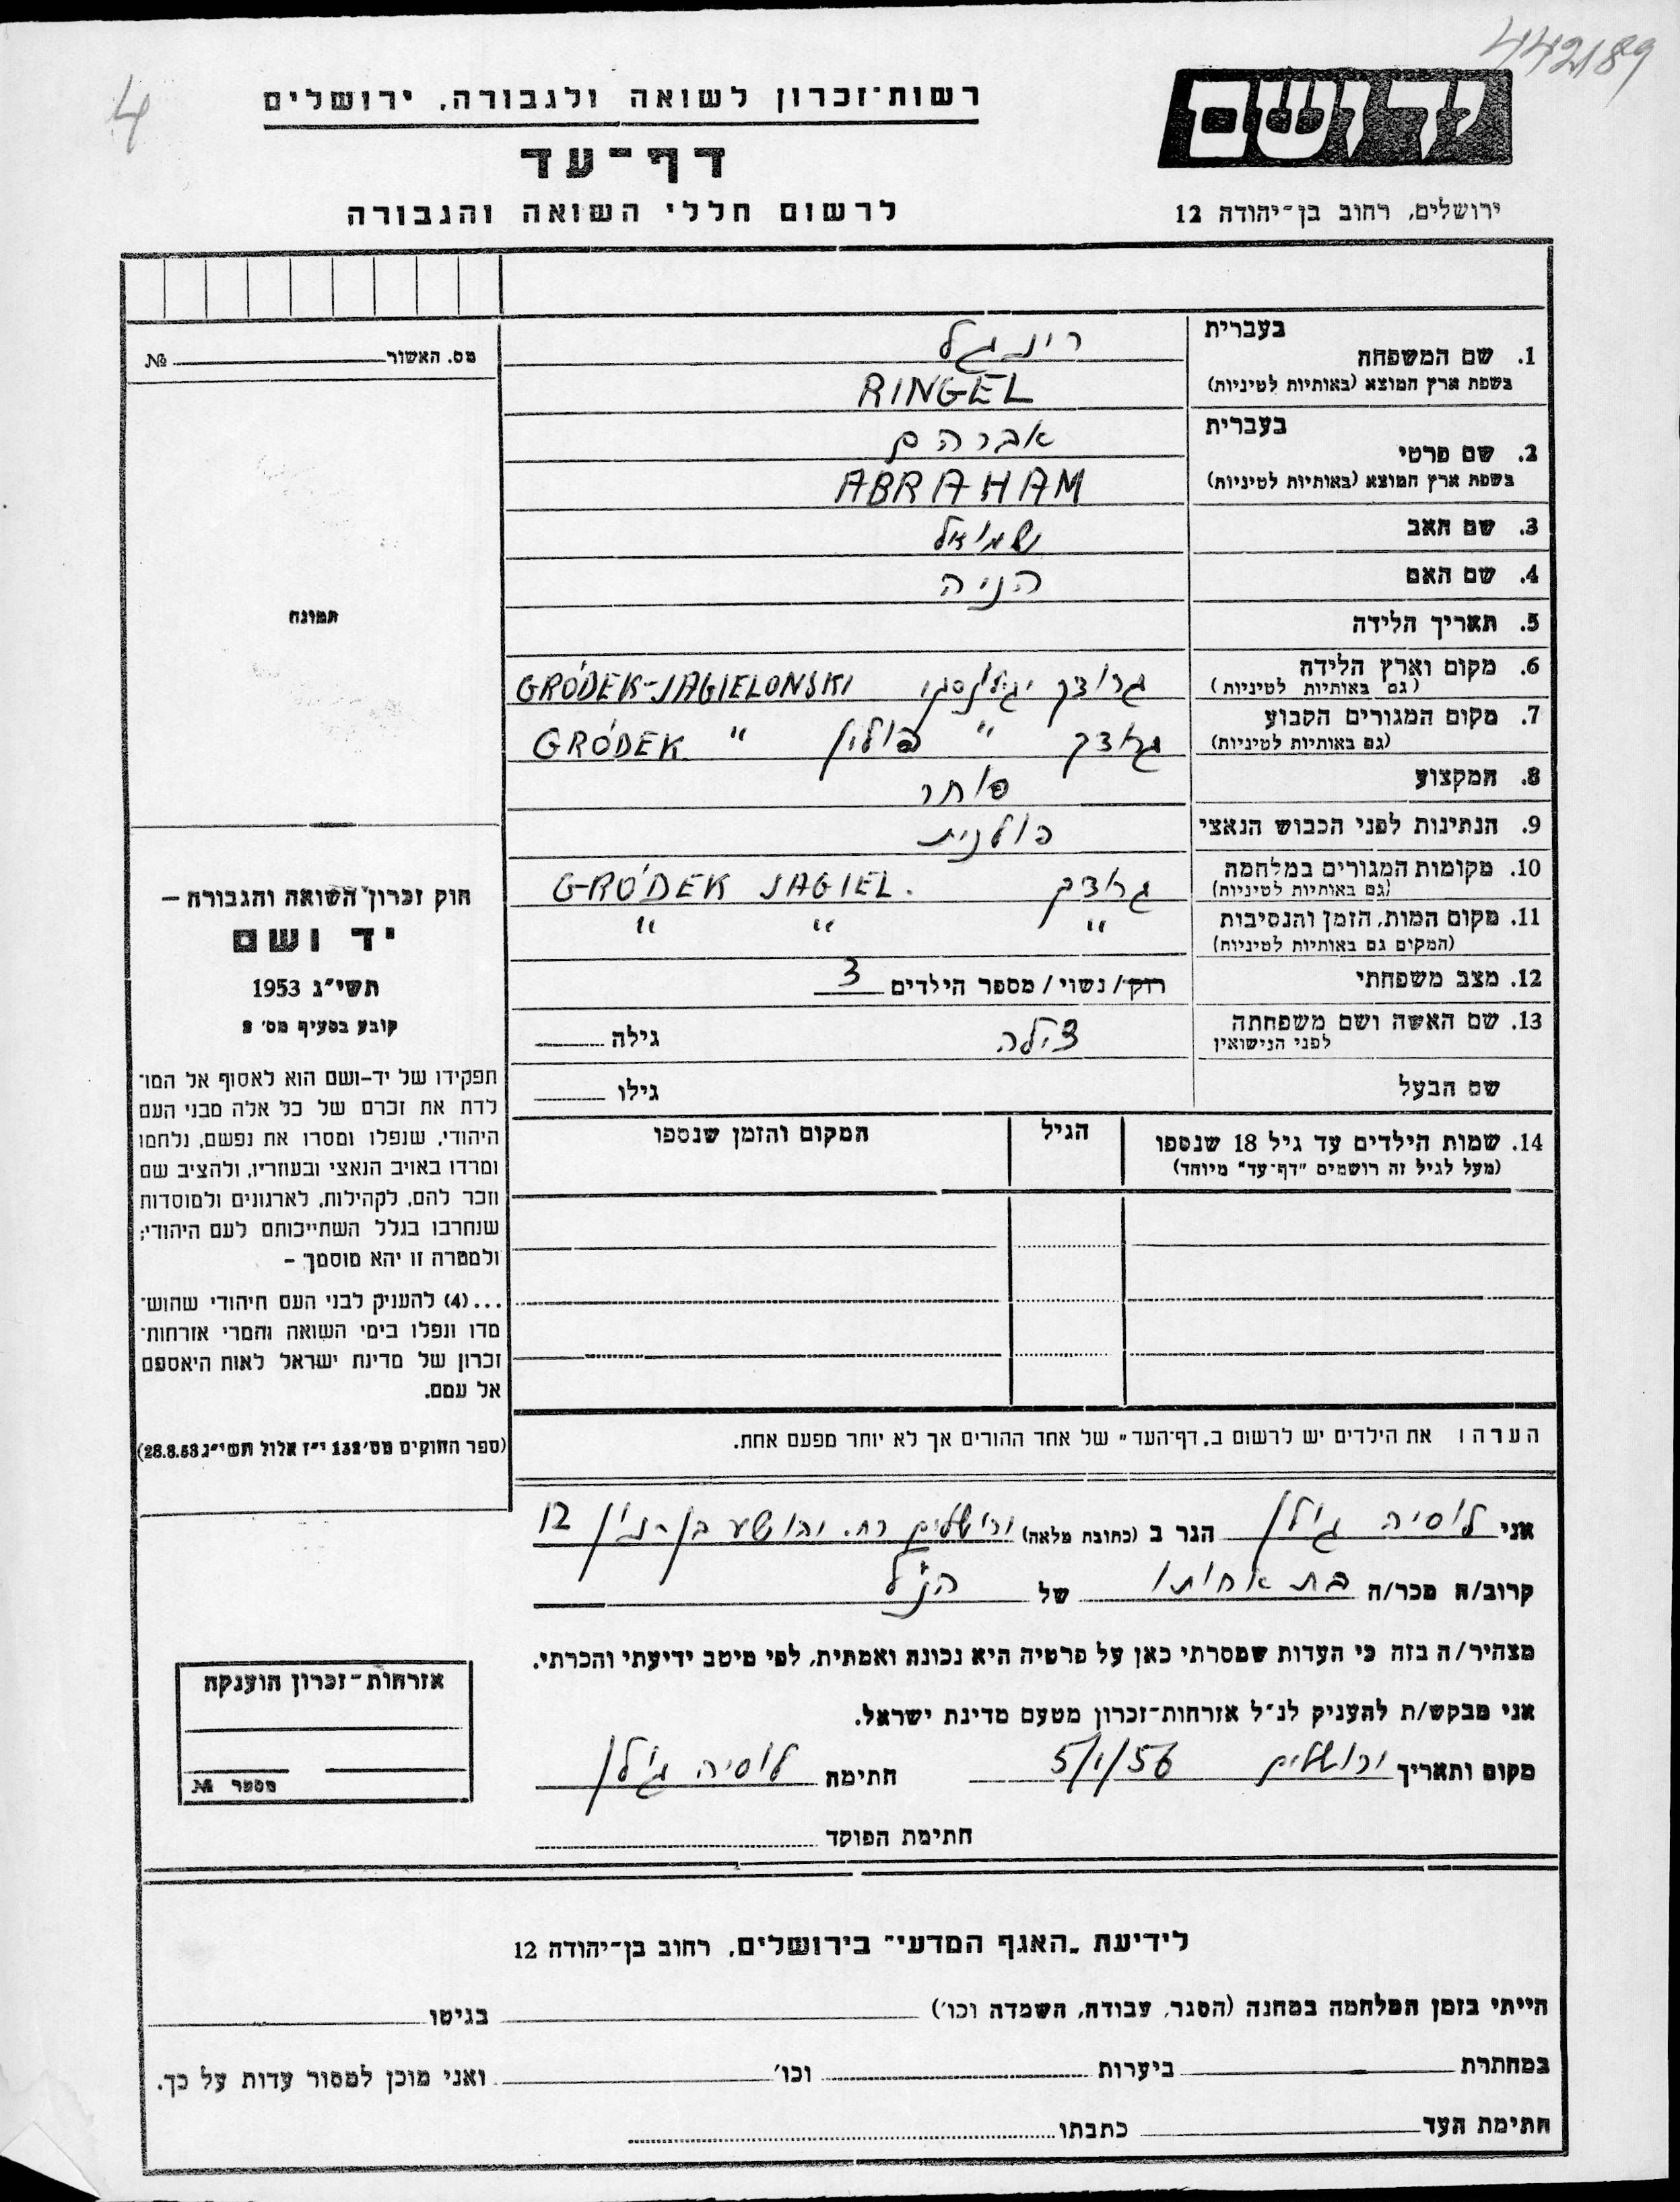 442189
4
רשות־זכרון לשואה ולגבורה, ירושלים
יד ושם
דף־עד
לרשום חללי השואה והגבורה
ירושלים, רחוב בן־יהודה 12
בעברית
1. שם המשפחה
רינגל
בשפת ארץ המוצא (באותיות לטיניות)
RINGEL
מס. האשור № 
בעברית
2. שם פרטי
אברהם
בשפת ארץ המוצא (באותיות לטיניות)
ABRAHAM
3. שם האב שמואל
4. שם האם הניה
תמונה
5. תאריך הלידה
6. מקום וארץ הלידה גרודק יגילונסקי GRÓDEK-JAGIELONSKI
(גם באותיות לטיניות)
7. מקום המגורים הקבוע גרודק " פולין GRÓDEK "
(גם באותיות לטיניות)
8. המקצוע סוחר
9. הנתינות לפני הכבוש הנאצי פולנית
10. מקומות המגורים במלחמה גרודק GRÓDEK JAGIEL.
(גם באותיות לטיניות)
11. מקום המות, הזמן והנסיבות " " "
(המקום גם באותיות לטיניות)
12. מצב משפחתי רוק/ נשוי / מספר הילדים 3
13. שם האשה ושם משפחתה צילה גילה
לפני הנישואין
שם הבעל גילו
14. שמות הילדים עד גיל 18 שנספו הגיל המקום והזמן שנספו
(מעל לגיל זה רושמים "דף־עד" מיוחד)
חוק זכרון השואה והגבורה –
יד ושם
תשי"ג 1953
קובע בסעיף מס' 2
תפקידו של יד–ושם הוא לאסוף אל המו־
לדת את זכרם של כל אלה מבני העם
היהודי, שנפלו ומסרו את נפשם, נלחמו
ומרדו באויב הנאצי ובעוזריו, ולהציב שם
וזכר להם, לקהילות, לארגונים ולמוסדות
שנחרבו בגלל השתייכותם לעם היהודי;
ולמטרה זו יהא מוסמך –
...(4) להעניק לבני העם היהודי שהוש־
מדו ונפלו בימי השואה והמרי אזרחות־
זכרון של מדינת ישראל לאות היאספם
אל עמם.
(ספר החוקים מס' 132 י"ז אלול תשי"ג 28.8.53)
הערה: את הילדים יש לרשום ב"דף־העד" של אחד ההורים אך לא יותר מפעם אחת.
אני לוסיה גולן הגר ב (כתובת מלאה) ירושלים רח. יהושע בן-נון 12
קרוב/ה מכר/ה בת אחותו של הנ"ל
מצהיר/ה בזה כי העדות שמסרתי כאן על פרטיה היא נכונה ואמתית, לפי מיטב ידיעתי והכרתי.
אני מבקש/ת להעניק לנ"ל אזרחות־זכרון מטעם מדינת ישראל.
מקום ותאריך ירושלים 5/1/56 חתימה לוסיה גולן
חתימת הפוקד
אזרחות־זכרון הוענקה
מספר №
לידיעת "האגף המדעי" בירושלים, רחוב בן־יהודה 12
הייתי בזמן המלחמה במחנה (הסגר, עבודה, השמדה וכו') בגיטו
במחתרת ביערות וכו' ואני מוכן למסור עדות על כך.
חתימת העד כתבתו